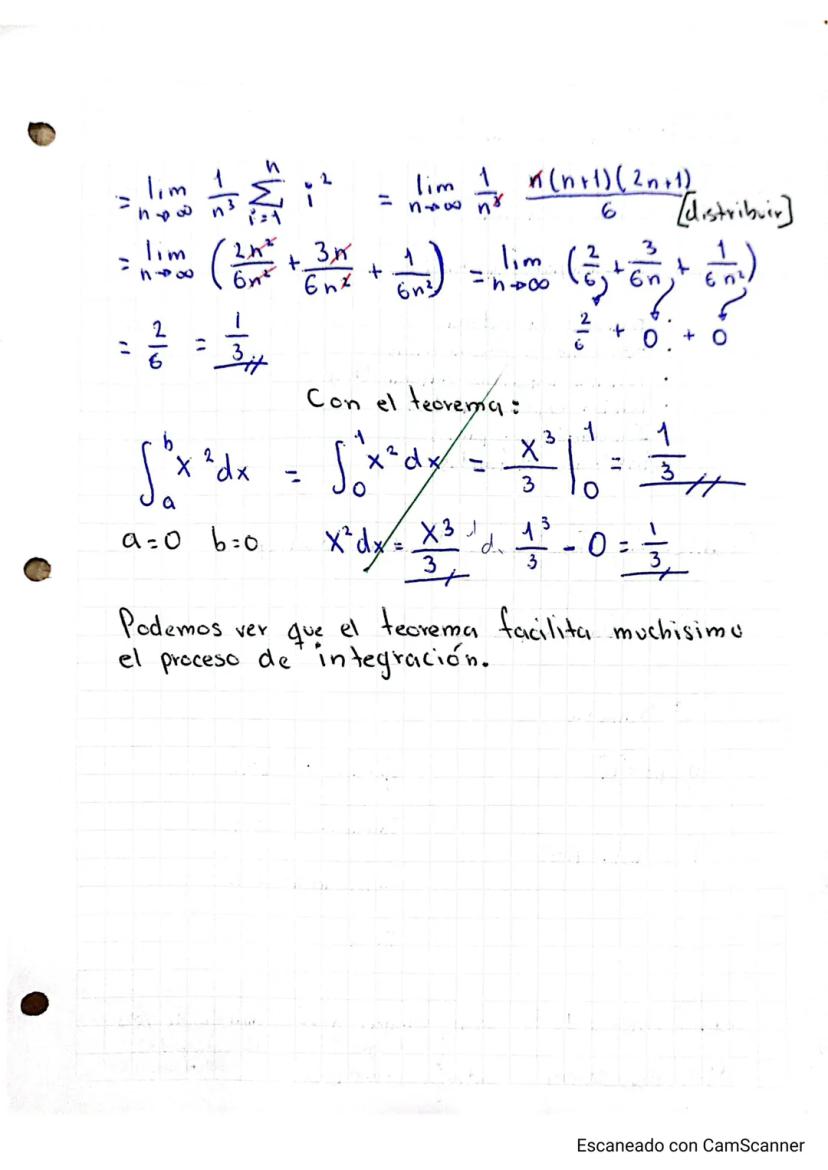 = lim n→∞ 1/n³ Σ i=1 n i² = lim n→∞ 1/n³ n(n+1)(2n+1)/6 [distribuir]
= lim n→∞ (2n²/6n² + 3n/6n² + 1/6n²) = lim n→∞ (2/6 + 3/6n + 1/6n²)
= 2/6 = 1/3 2/6 + 0 + 0
Con el teorema:
∫ₐᵇ x² dx = ∫₀¹ x² dx = x³/3 |₀¹ = 1/3
a=0 b=0 x² dx = x³/3 1³/3 - 0 = 1/3
Podemos ver que el teorema facilita muchisimo
el proceso de integración.
Escaneado con CamScanner